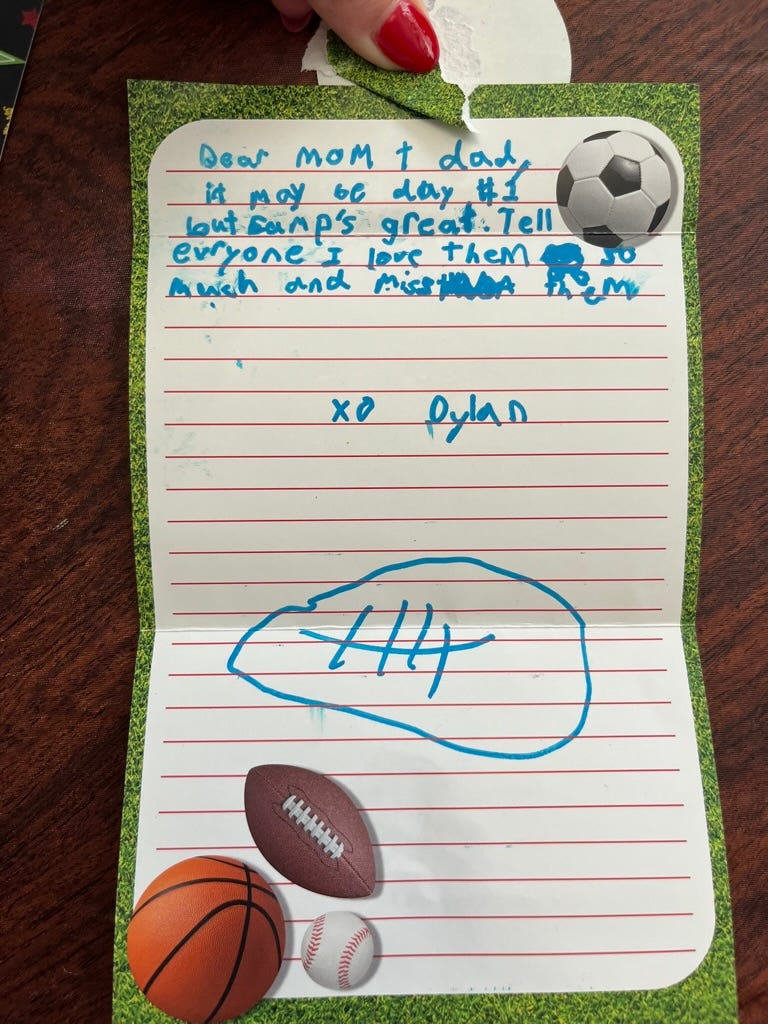 Dear MOM + dad,
it may be day #1
but camp's great. Tell
evryone I love them so
much and miss them
xo Dylan